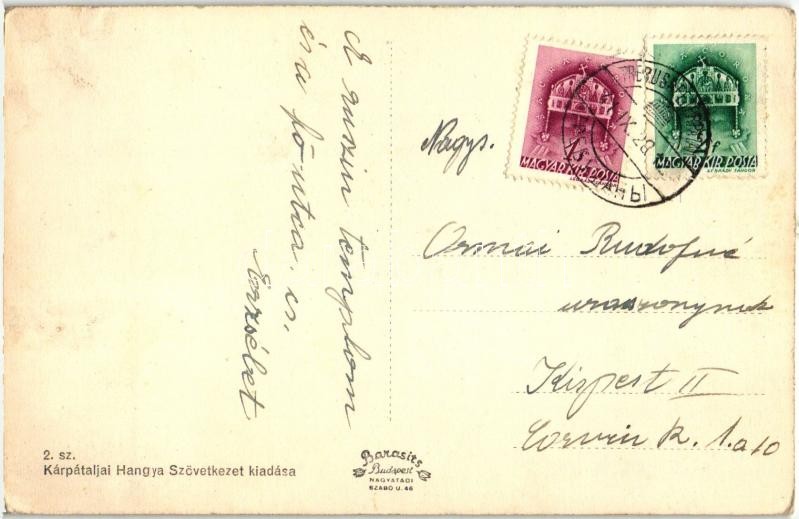 A ruszin templom
és a fő utca. cs.
Erzsébet
Nagys.
Ormai Rudofné
uraszonynak
Kispest II
Corvin k. 1. a 10
MAGYAR KIR. POSTA
MAGYAR KIR. POSTA
IX. 28
2. sz.
Kárpátaljai Hangya Szövetkezet kiadása
Barasits
Budapest
NAGYATÁDI
SZABÓ U. 46